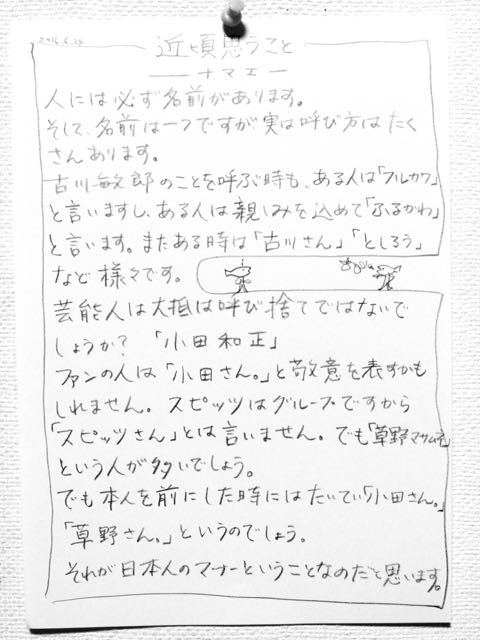 2016.6.24
近頃思うこと
ーナマエー
人には必ず名前があります。
そして、名前は一つですが実は呼び方はたく
さんあります。
古川敏郎のことを呼ぶ時も、ある人は「フルカワ」
と言いますし、ある人は親しみを込めて「ふるかわ」
と言います。またある時は「古川さん」「としろう」
など様々です。
芸能人は大抵は呼び捨てではないで
しょうか?「小田和正」
ファンの人は「小田さん。」と敬意を表すかも
しれません。スピッツはグループですから
「スピッツさん」とは言いません。でも「草野マサムネ」
という人が多いでしょう。
でも本人を前にした時にはたいてい「小田さん。」
「草野さん。」というのでしょう。
それが日本人のマナーということなのだと思います。